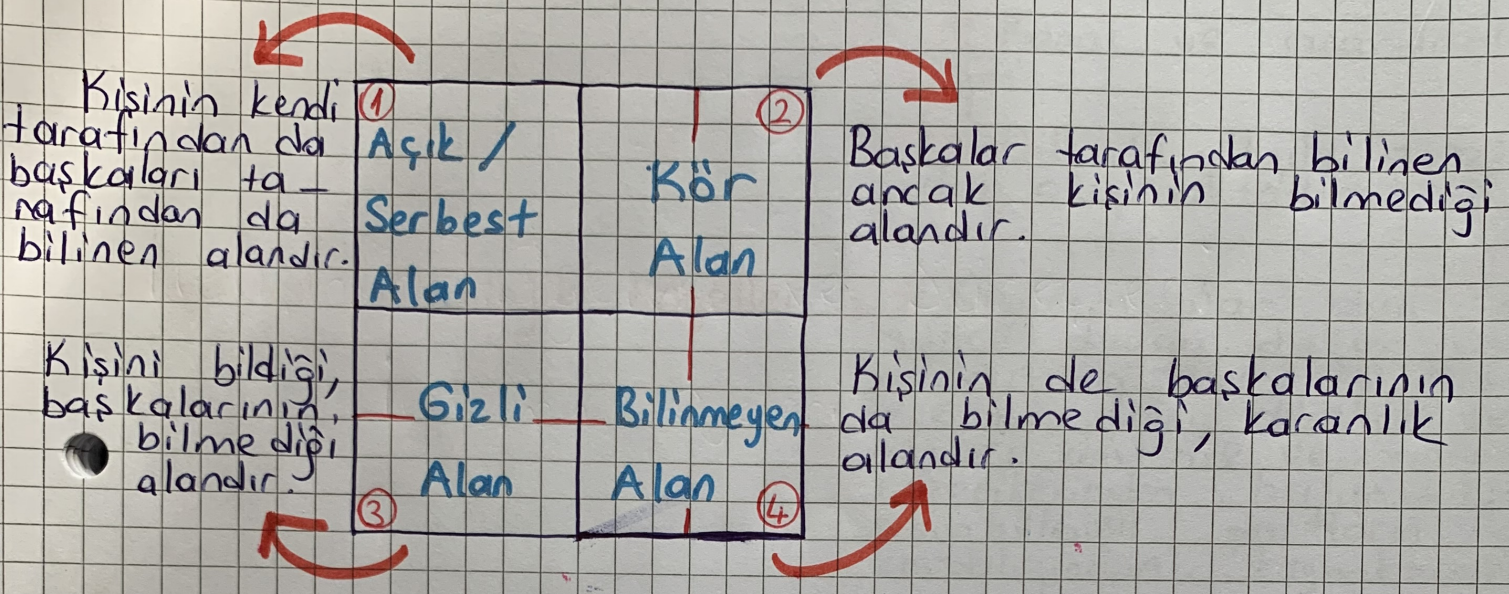 Kişinin kendi
tarafından da
başkaları ta-
rafından da
bilinen alandır.
1
Açık /
Serbest
Alan
2
Kör
Alan
Başkalar tarafından bilinen
ancak kişinin bilmediği
alandır.
Kişini bildiği,
başkalarının,
bilmediği
alandır.
Gizli
Alan
3
Bilinmeyen
Alan
4
Kişinin de başkalarının
da bilmediği, karanlık
alandır.